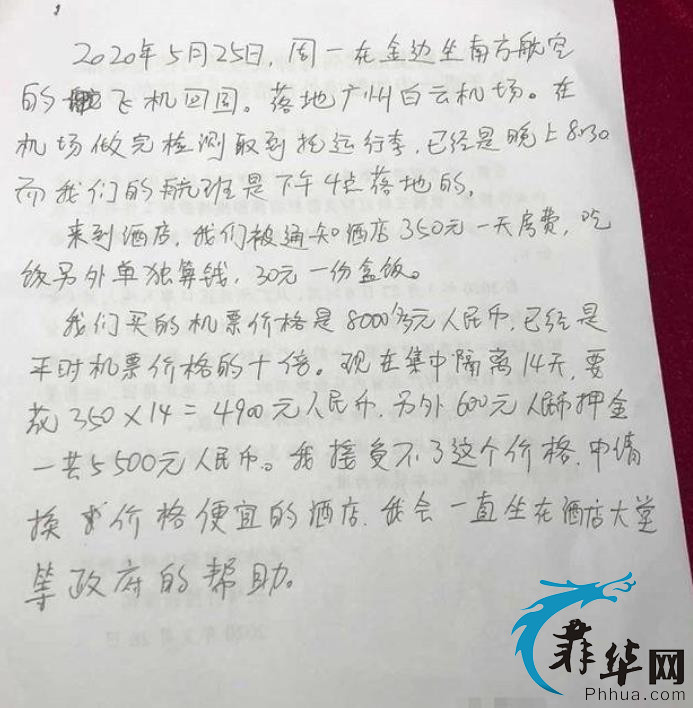 2020年5月25日，周一在金边坐南方航空
的飞机回国。落地广州白云机场。在
机场做完检测取到托运行李，已经是晚上8:30
而我们的航班是下午4点落地的，
来到酒店，我们被通知酒店350元一天房费，吃
饭另外单独算钱，30元一份盒饭。
我们买的机票价格是8000多元人民币，已经是
平时机票价格的十倍。现在集中隔离14天，要
花350×14=4900元人民币，另外600元人民币押金
一共5500元人民币。我接受不了这个价格，申请
换价格便宜的酒店，我会一直坐在酒店大堂
等政府的帮助。
菲华网
Phhua.com